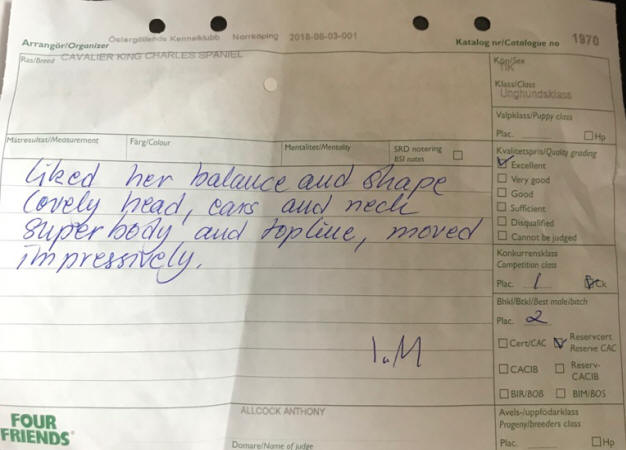 Arrangör/Organizer Östergötlands Kennelklubb Norrköping 2018-08-03-001 Katalog nr/Catalogue no 1970
Ras/Breed CAVALIER KING CHARLES SPANIEL
Kön/Sex
TIK
Klass/Class
Unghundsklass
Valpklass/Puppy class
Plac. Hp
Mätresultat/Measurement Färg/Colour Mentalitet/Mentality SRD notering
BSI notes
Kvalitetspris/Quality grading
Excellent
Very good
Good
Sufficient
Disqualified
Cannot be judged
liked her balance and shape
lovely head, ears and neck
superbody and topline, moved
impressively.
Konkurrensklass
Competition class
Plac. 1 Ck
Bhkl/Btkl/Best male/bitch
Plac. 2
Cert/CAC Reservcert
Reserve CAC
CACIB Reserv-
CACIB
BIR/BOB BIM/BOS
1.M
FOUR
FRIENDS
ALLCOCK ANTHONY
Domare/Name of judge
Avels-/uppfödarklass
Progeny/breeders class
Plac. Hp